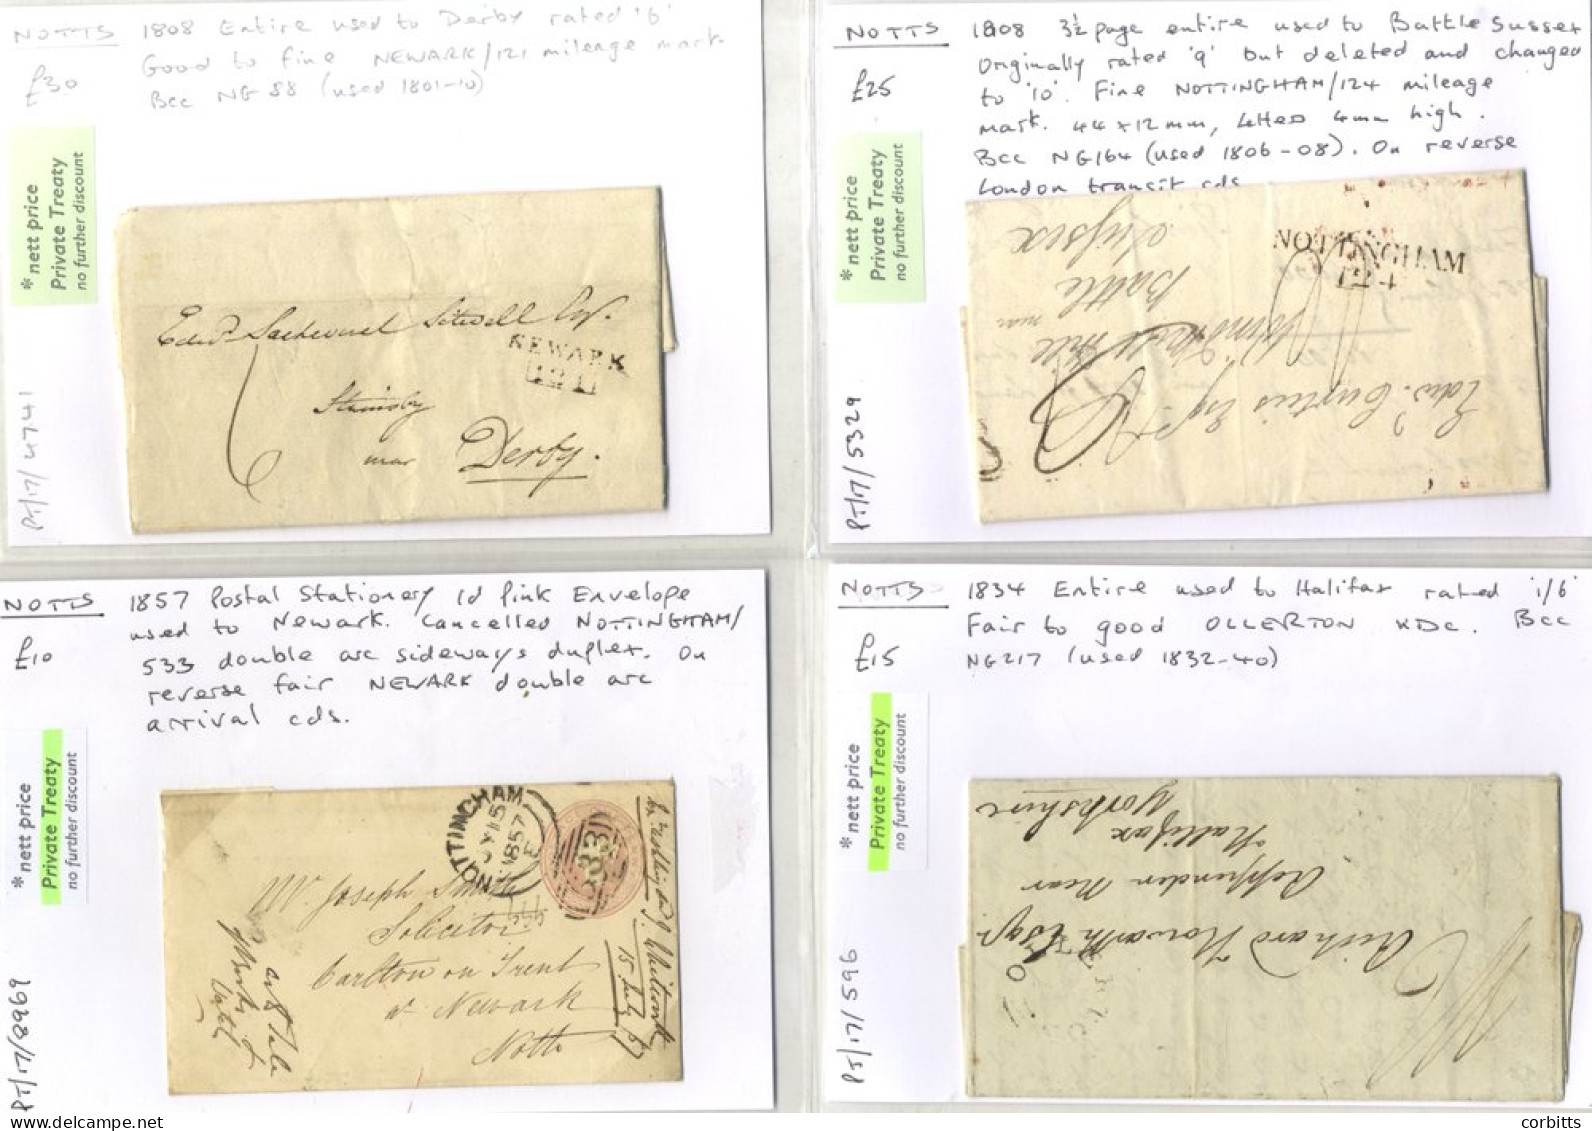 NOTTS
£30
1808 Entire used to Derby rated '6'
Good to fine NEWARK/121 mileage mark.
Bcc NG 88 (used 1801-10)
* nett price
Private Treaty
no further discount
PT/17/4741
Edwd Sacheverel Sitwell Esqr.
NEWARK
121
6
Stainsby
near Derby.
NOTTS
£25
1808 3½ page entire used to Battle Sussex
Originally rated '9' but deleted and changed
to '10'. Fine NOTTINGHAM/124 mileage
mark. 44 x 12 mm, letters 4mm high.
Bcc NG164 (used 1806-08). On reverse
London transit cds
* nett price
Private Treaty
no further discount
PT/17/5329
NOTTINGHAM
124
Edwd. Curteis Esqr
Hill
near
Battle
Sussex
NOTTS
£10
1857 Postal Stationery 1d pink Envelope
used to Newark. Cancelled NOTTINGHAM/
533 double arc sideways duplex. On
reverse fair NEWARK double arc
arrival cds.
* nett price
Private Treaty
no further discount
PT/17/8969
NOTTINGHAM
JY 15
1857
E
533
Mr. Joseph Smith
Solicitor
Carlton on Trent
nr Newark
Notts
15 July 57
NOTTS
£15
1834 Entire used to Halifax rated '1/6'
Fair to good OLLERTON XDC. Bcc
NG217 (used 1832-40)
* nett price
Private Treaty
no further discount
PT/17/596
Richard Howarth Esqr
Ripponden Near
Hallifax
Yorkshire
corbitts